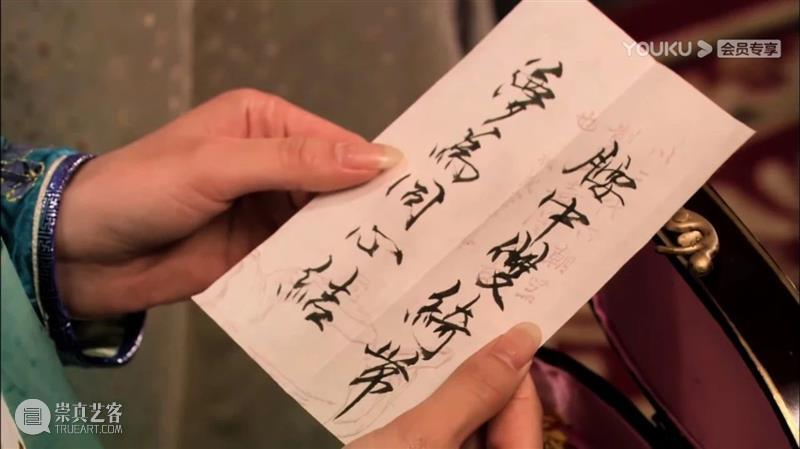 YOUKU 会员专享
腰中雙綺帶
夢為同心結
崇真艺客
TRUEART.COM